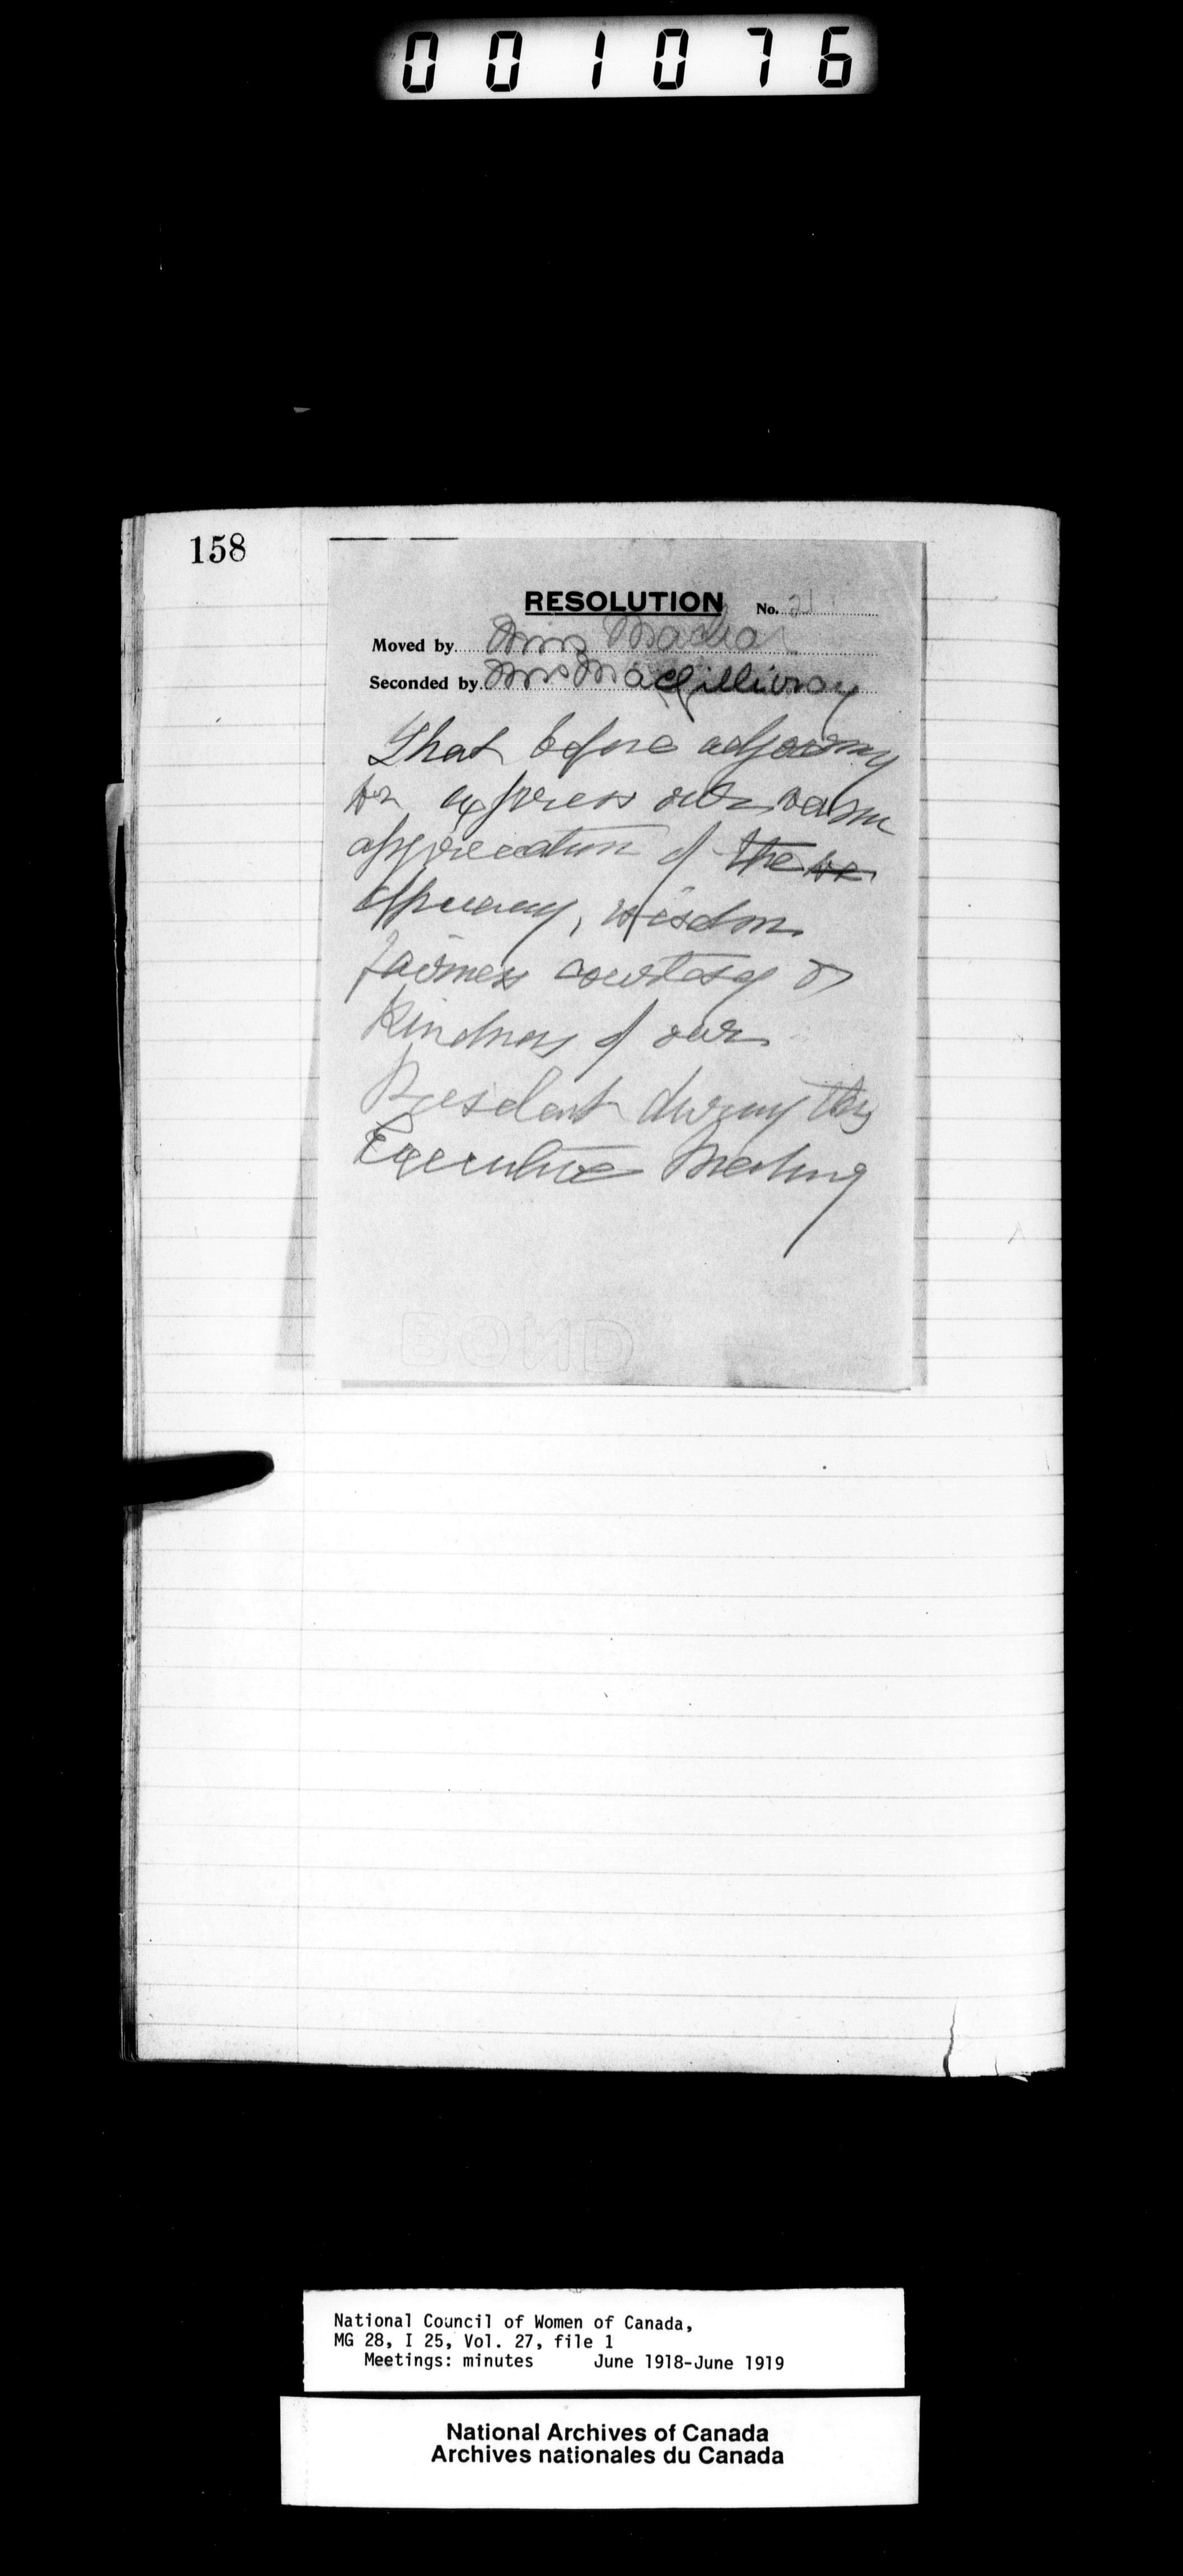 001076
158
RESOLUTION No. 21
Moved by Miss Machar
Seconded by Mrs MacGillivray
That before adjourning
we express our warm
appreciation of the we
efficiency, wisdom
fairness courtesy &
kindness of our
President during this
Executive Meeting
BOND
National Council of Women of Canada,
MG 28, I 25, Vol. 27, file 1
Meetings: minutes June 1918-June 1919
National Archives of Canada
Archives nationales du Canada